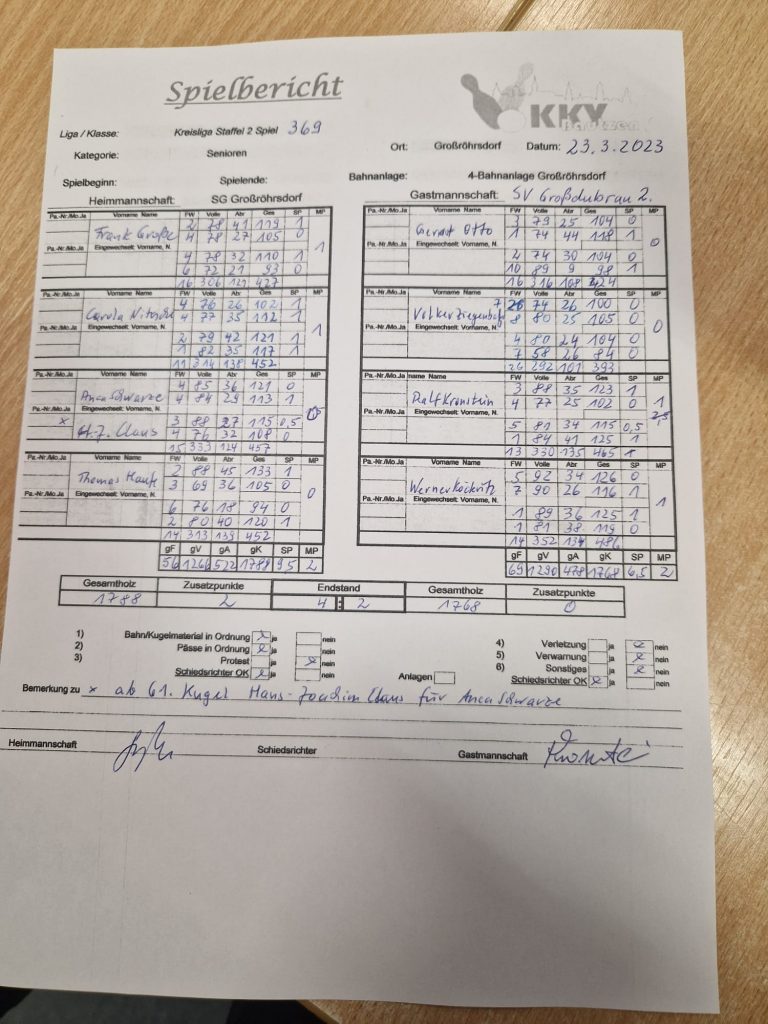 Spielbericht
KKV
Bautzen
Liga / Klasse: Kreisliga Staffel 2 Spiel 369
Kategorie: Senioren Ort: Großröhrsdorf Datum: 23.3.2023
Spielbeginn: Spielende: Bahnanlage: 4-Bahnanlage Großröhrsdorf
Heimmannschaft: SG Großröhrsdorf
Pa.-Nr./Mo.Ja Vorname Name FW Volle Abr Ges SP MP
Frank Große 2 78 41 119 1
4 78 27 105 0
Pa.-Nr./Mo.Ja Eingewechselt: Vorname, N. 1
4 78 32 110 1
6 72 21 93 0
16 306 121 427
Pa.-Nr./Mo.Ja Vorname Name FW Volle Abr Ges SP MP
Carola Nitzsche 4 76 26 102 1
4 77 35 112 1
Pa.-Nr./Mo.Ja Eingewechselt: Vorname, N. 1
2 79 42 121 1
1 82 35 117 1
11 314 138 452
Pa.-Nr./Mo.Ja Vorname Name FW Volle Abr Ges SP MP
Anca Schwarze 4 85 36 121 0
4 84 29 113 1
Pa.-Nr./Mo.Ja Eingewechselt: Vorname, N.
x H.-J. Claus 3 88 27 115 0,5
4 76 32 108 0
15 333 124 457
Pa.-Nr./Mo.Ja Vorname Name FW Volle Abr Ges SP MP
Thomas Haufe 2 88 45 133 1
3 69 36 105 0
Pa.-Nr./Mo.Ja Eingewechselt: Vorname, N. 0
6 76 18 94 0
2 80 40 120 1
14 313 139 452
gF gV gA gK SP MP
56 1266 522 1788 9,5 2
Gastmannschaft: SV Großdubrau 2.
Pa.-Nr./Mo.Ja Vorname Name FW Volle Abr Ges SP MP
Gernot Otto 3 79 25 104 0
1 74 44 118 1
Pa.-Nr./Mo.Ja Eingewechselt: Vorname, N. 0
2 74 30 104 0
10 89 9 98 1
16 316 108 424
Pa.-Nr./Mo.Ja Vorname Name FW Volle Abr Ges SP MP
Volker Ziegenbalg 7 26 74 26 100 0
8 80 25 105 0
Pa.-Nr./Mo.Ja Eingewechselt: Vorname, N. 0
4 80 24 104 0
7 58 26 84 0
26 292 101 393
Pa.-Nr./Mo.Ja name Name FW Volle Abr Ges SP MP
Ralf Kronstein 3 88 35 123 1
4 77 25 102 0
Pa.-Nr./Mo.Ja Eingewechselt: Vorname, N. 1
5 81 34 115 0,5
1 84 41 125 1
13 330 135 465
Pa.-Nr./Mo.Ja Vorname Name FW Volle Abr Ges SP MP
Werner Kockritz 5 92 34 126 0
7 90 26 116 1
Pa.-Nr./Mo.Ja Eingewechselt: Vorname, N. 1
1 89 36 125 1
1 81 38 119 0
14 352 134 486
gF gV gA gK SP MP
69 1290 478 1768 6,5 2
Gesamtholz Zusatzpunkte Endstand Gesamtholz Zusatzpunkte
1788 2 4 : 2 1768 0
1) Bahn/Kugelmaterial in Ordnung x ja nein
2) Pässe in Ordnung x ja nein
3) Protest ja x nein
Schiedsrichter OK x ja nein
Anlagen
4) Verletzung ja x nein
5) Verwarnung ja x nein
6) Sonstiges ja x nein
Schiedsrichter OK x ja nein
Bemerkung zu x ab 61. Kugel Hans-Joachim Claus für Anca Schwarze
Heimmannschaft Schiedsrichter Gastmannschaft